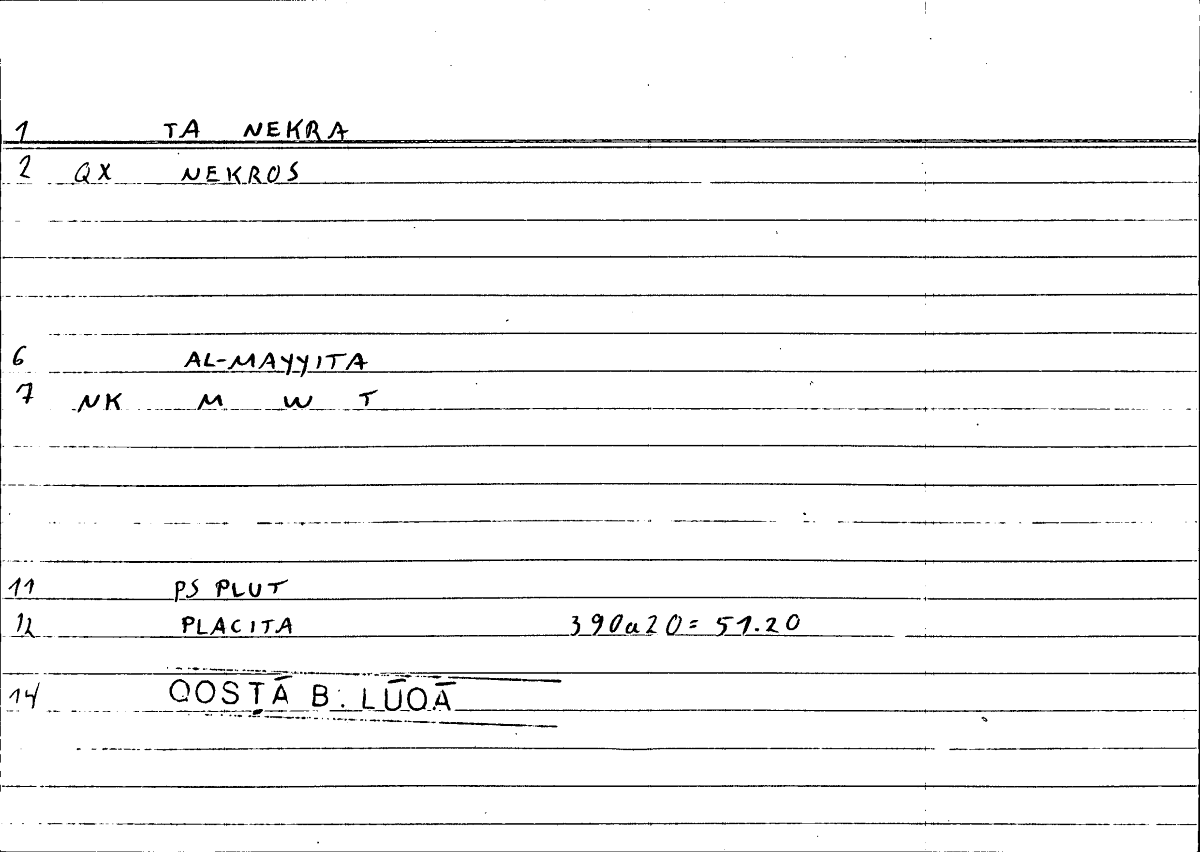 1 TA NEKRA
2 QX NEKROS
6 AL-MAYYITA
7 NK M W T
11 PS PLUT
12 PLACITA 390a20= 51.20
14 QOSṬĀ B. LŪQĀ